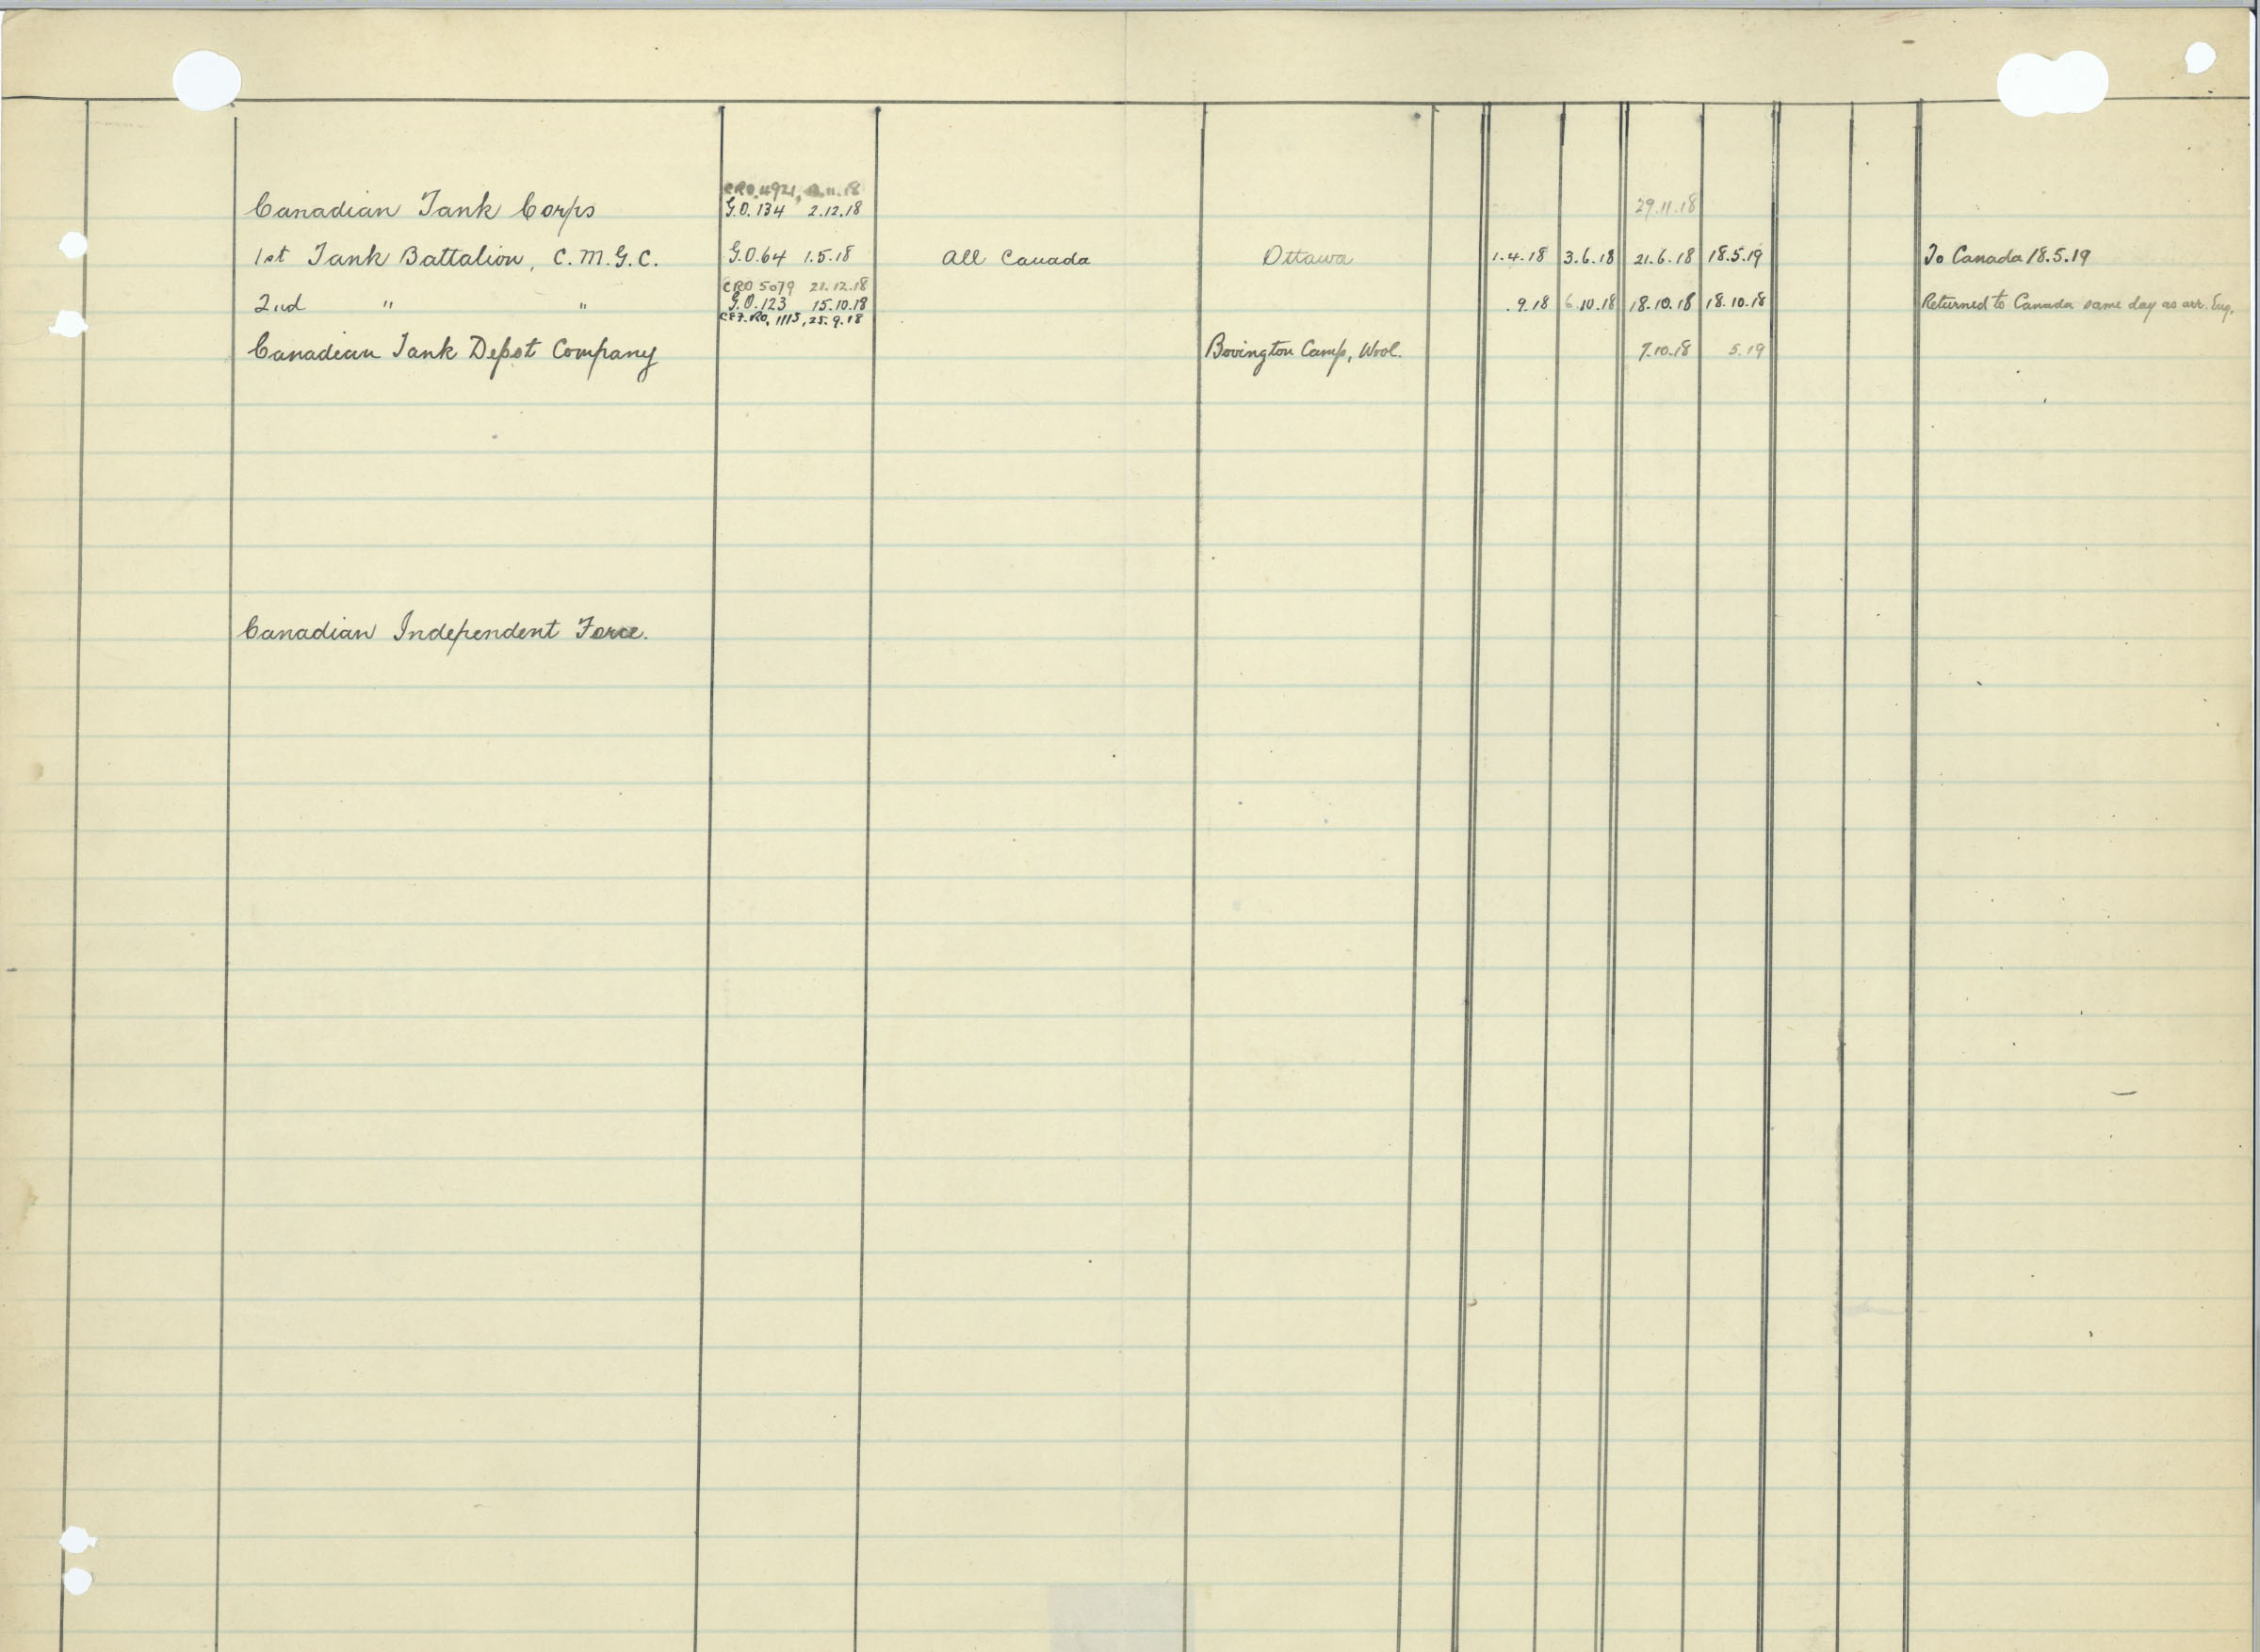 CRO 4921, .11.18
Canadian Tank Corps G.O. 134 2.12.18 29.11.18
1st Tank Battalion, C.M.G.C. G.O. 64 1.5.18 All Canada Ottawa 1.4.18 3.6.18 21.6.18 18.5.19 To Canada 18.5.19
CRO 5079 21.12.18
2nd " " G.O. 123 15.10.18 .9.18 6.10.18 18.10.18 18.10.18 Returned to Canada same day as arr. Eng.
RO, 1115, 25.9.18
Canadian Tank Depot Company Bovington Camp, Wool. 7.10.18 5.19
Canadian Independent Force.